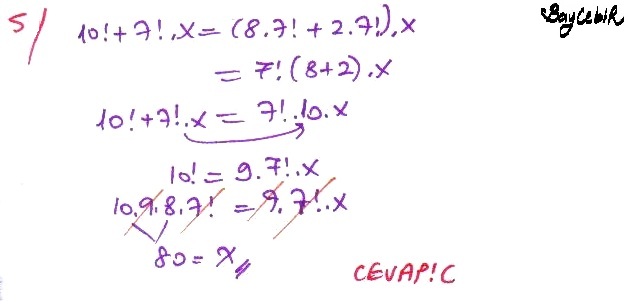 5/ 10!+7!.x = (8.7! + 2.7!).x
BayCebiR
= 7!(8+2).x
10!+7!.x = 7!.10.x
10! = 9.7!.x
10.9.8.7! = 9.7!.x
80 = x
CEVAP!C